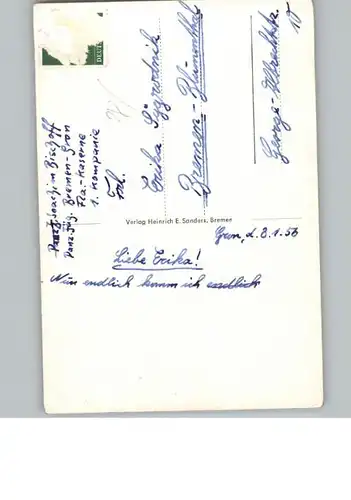 DEUTS
Panzj. Joachim Bischoff
Panz. Jäg. Bremen-Grohn
Fla-Kaserne
1. Kompanie
Frl.
Erika
Bremen-Blumenthal
George-Albrechtstr.
10
Verlag Heinrich E. Sanders, Bremen
d. 8.1.56
Liebe Erika!
Nun endlich komm ich endlich